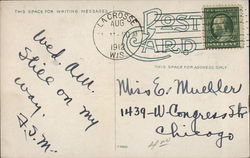 THIS SPACE FOR WRITING MESSAGES
LACROSSE
AUG
1912
WIS.
POST
CARD
THIS SPACE FOR ADDRESS ONLY
Wed. A.M.
Still on my
way.
F.S.M.
Miss E. Mueller
1439-W. Congress St
Chicago